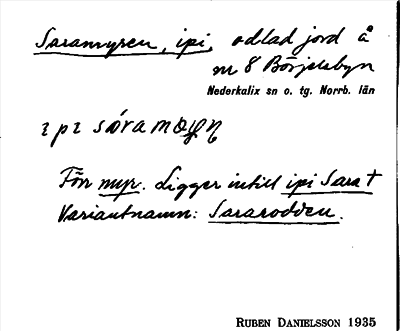 Saramyren, ipi, odlad jord å
nr 8 Börjelsbyn
Nederkalix sn o. tg. Norrb. län
Förr myr. Ligger intill ipi Sara †
Variantnamn: Sararodden.
RUBEN DANIELSSON 1935